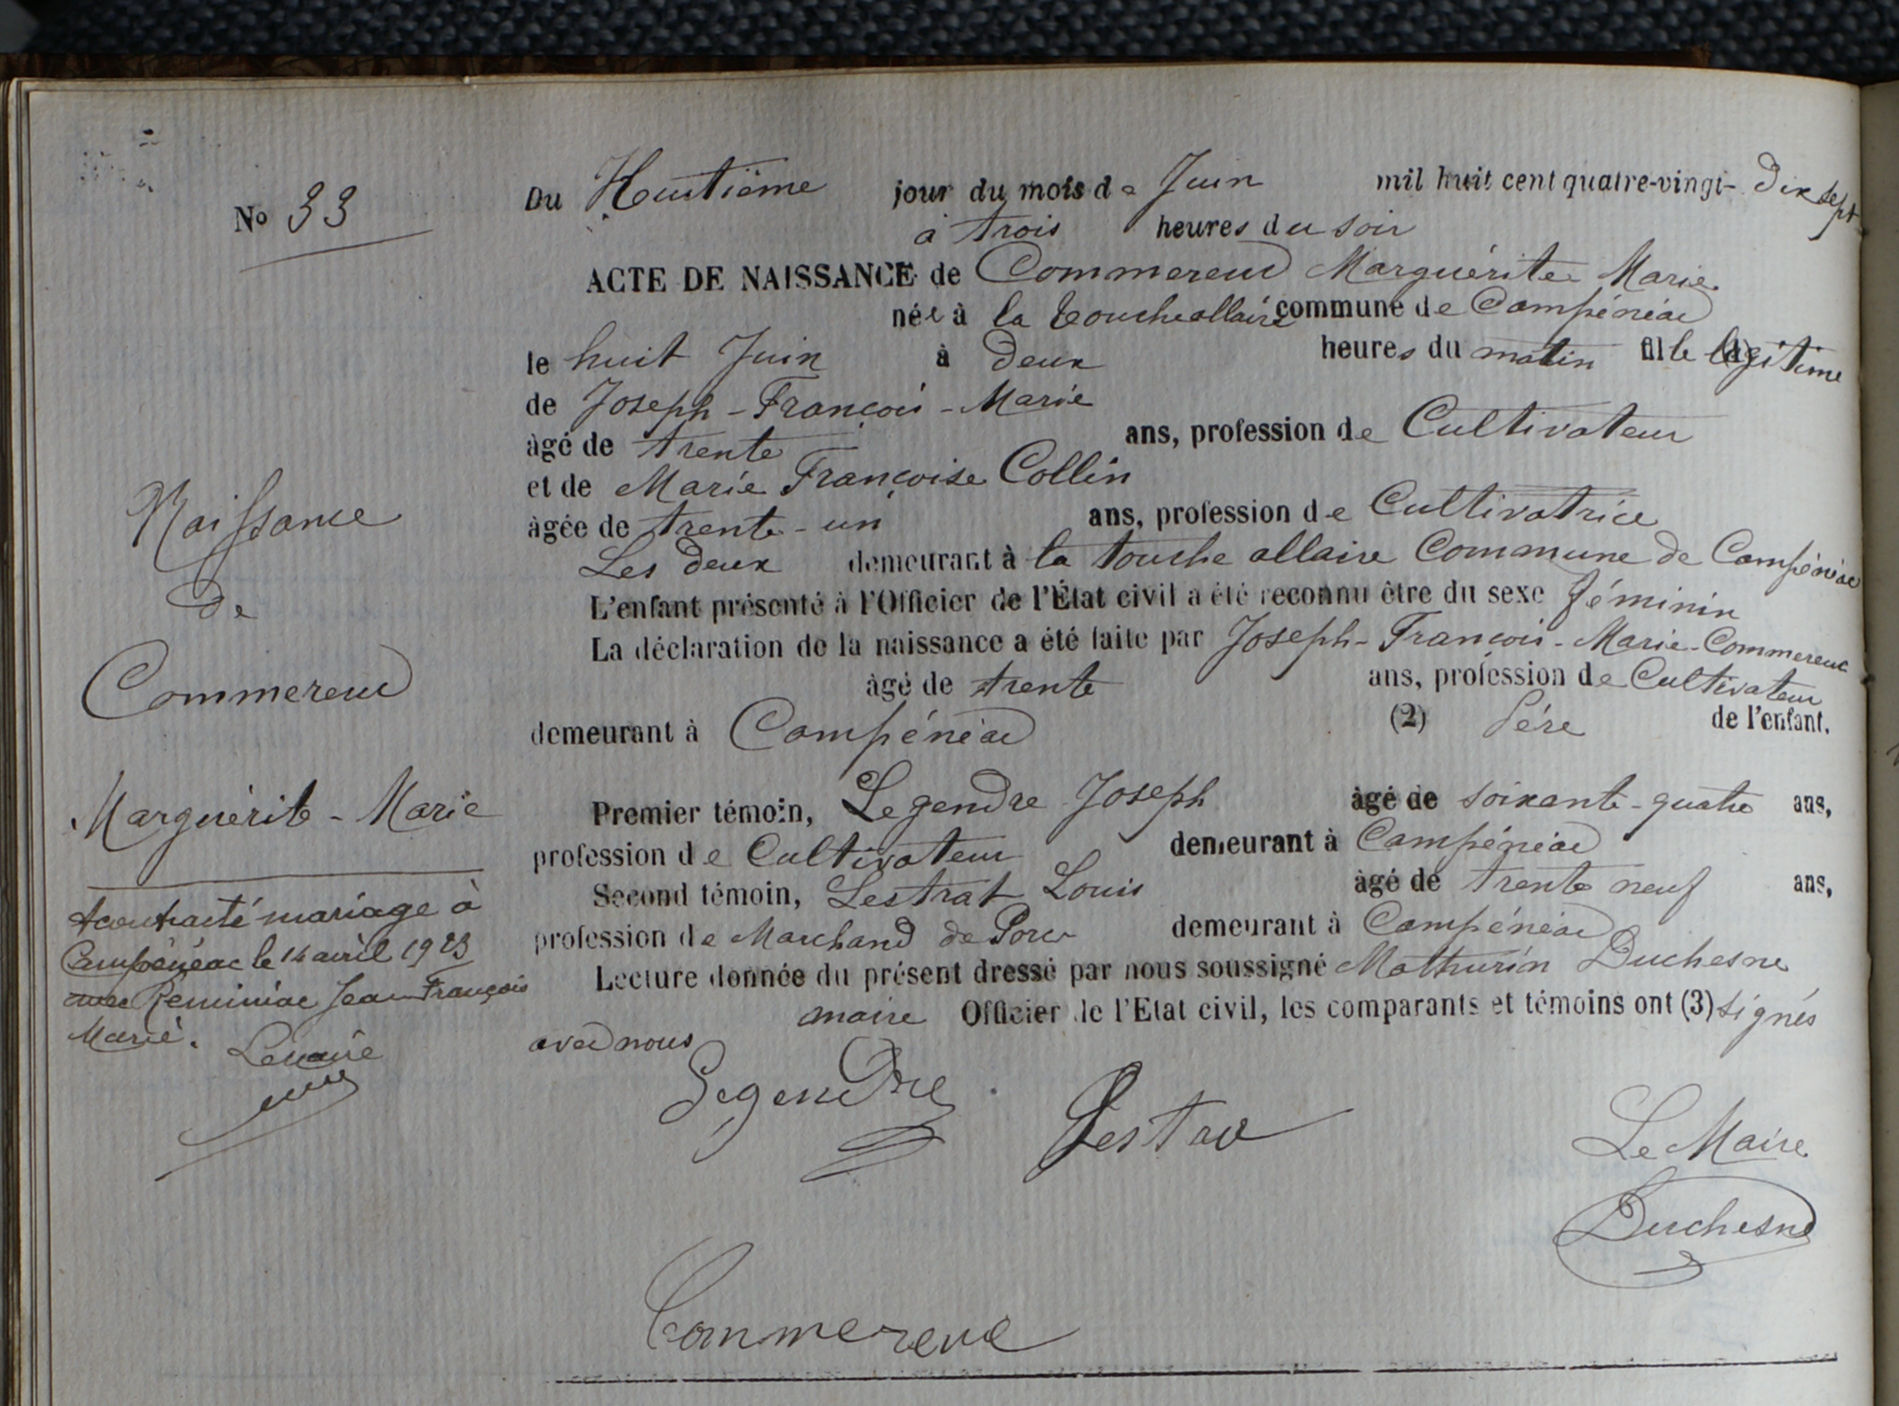 No 33
Du Huitième jour du mois de Juin mil huit cent quatre-vingt-Dix sept
à trois heures du soir
ACTE DE NAISSANCE de Commereuc Marguérite Marie
née à la toucheallaire commune de Campénéac
le huit Juin à deux heures du matin fille légitime
de Joseph-François-Marie
âgé de trente ans, profession de Cultivateur
et de Marie Françoise Collin
âgée de trente-un ans, profession de Cultivatrice
Les deux demeurant à la touche allaire Commune de Campénéac
L'enfant présenté à l'Officier de l'État civil a été reconnu être du sexe féminin
La déclaration de la naissance a été faite par Joseph-François-Marie-Commereuc
âgé de trente ans, profession de Cultivateur
demeurant à Campénéac (2) Père de l'enfant.
Premier témoin, Legendre Joseph âgé de soixante-quatre ans,
profession de Cultivateur demeurant à Campénéac
Second témoin, Lestrat Louis âgé de trente neuf ans,
profession de Marchand de Porcs demeurant à Campénéac
Lecture donnée du présent dressé par nous soussigné Mathurin Duchesne
maire Officier de l'Etat civil, les comparants et témoins ont (3) signés
avec nous
Legendre Lestrat
Le Maire
Duchesne
Commereuc
Naissance
de
Commereuc
Marguérite-Marie
A contracté mariage à
Campénéac le 14 avril 1923
avec Réminiac Jean François
Marie.
Le maire